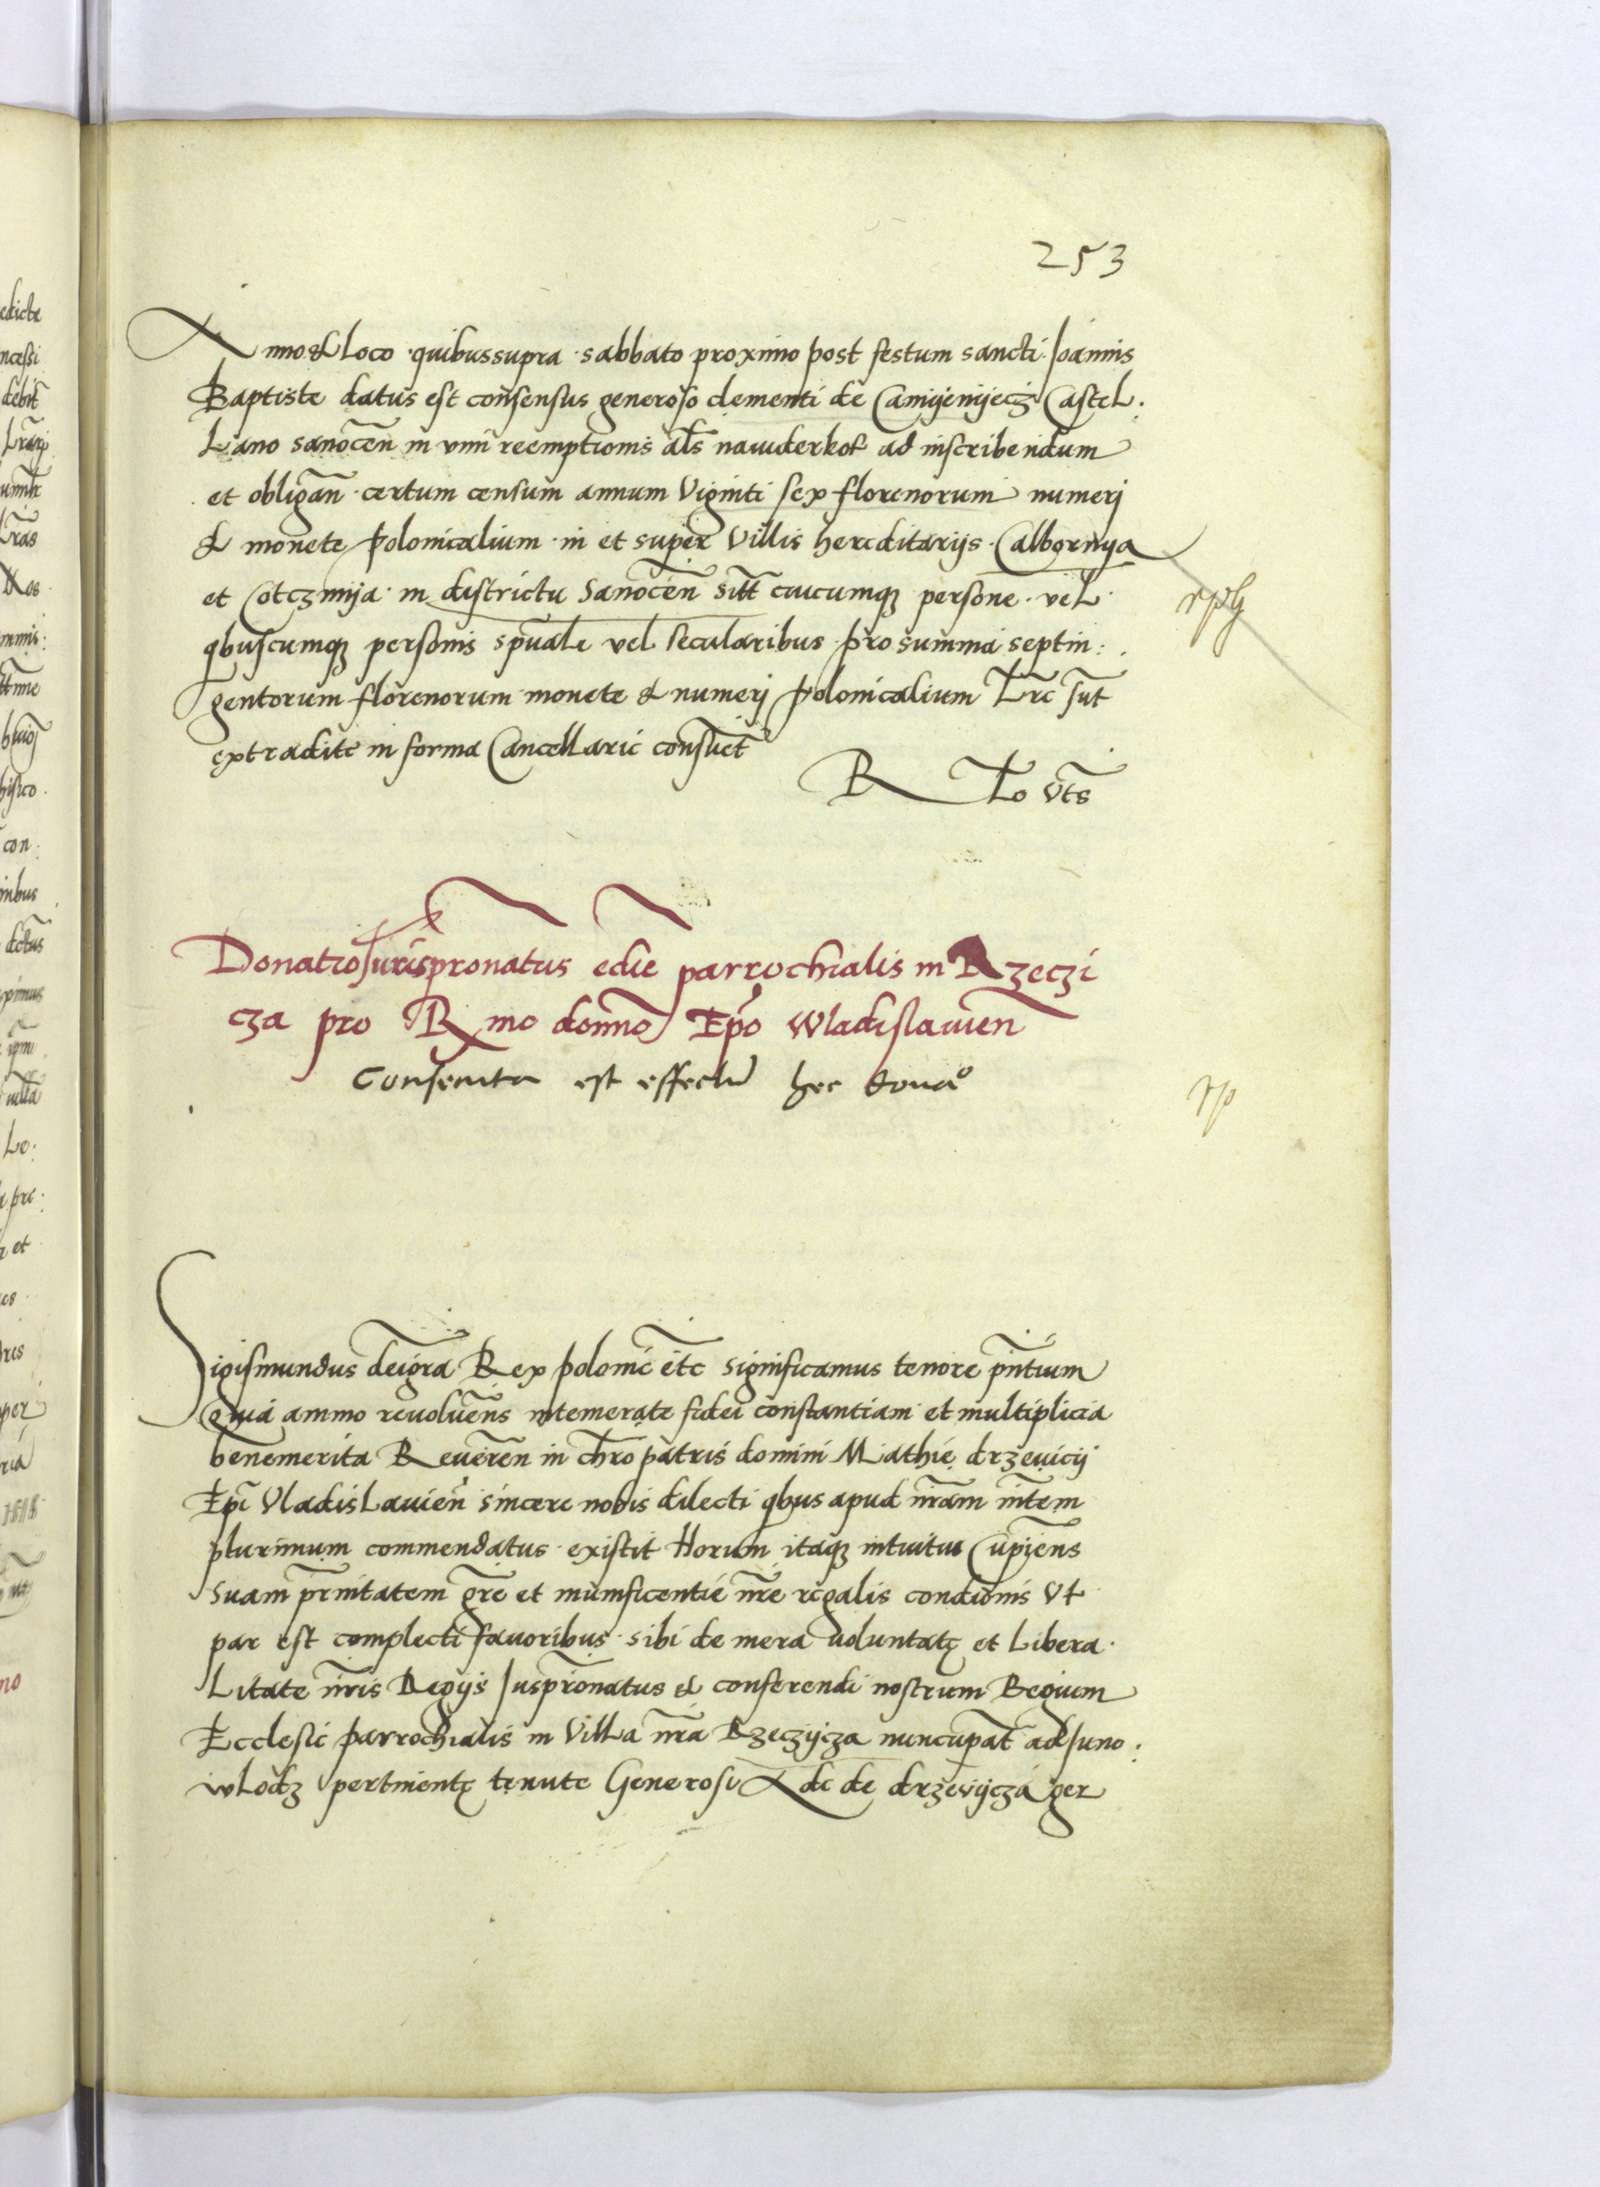 253
Anno & Loco quibussupra sabbato proximo post festum sancti Joannis
Baptiste datus est consensus generoso clementi de Camijenijeczi Castel
Lano sanoceñ in vim reemptionis als nawderkoff ad inscribendum
et obligañ certum censum annuum Viginti sex florenorum numeri
& monete polonicalium in et super Villis hereditarijs Calbornya
et Cotczmija in districtu Sanoceñ sitt cuicumqz persone vel
qbuscumqz personis spuale vel secularibus pro summa septin
gentorum florenorum monete & numeri polonicalium Lre sut
extradite in forma Cancellarie consuet
R Lo vts
Donatio Jurispronatus eclie parrochialis in Rzeczi
cza pro R mo domno Epo Wladislauien
Consecuta est effectu hec donao
Sigismundus deigra Rex polonie etc significamus tenore pntium
Quia animo revoluens intemerate fidei constantiam et multiplicia
benemerita Reueren in chro patris domini Mathie drzeuicij
Epi Vladislauien sincere nobis dilecti qbus apud nram mtem
plurimum commendatus existit Horum itaqz intuitu Cupiens
suam prnitatem gre et munificentie nre regalis condionis Vt
par est complecti favoribus sibi de mera voluntate et Libera
Litate nris Regijs Juspronatus & conferendi nostrum Regium
Ecclesie parrochialis in Villa nra Rzeczijcza nuncupat ad Juno
wlodz pertinente tenute Generosi Ade de drzevijcza ger